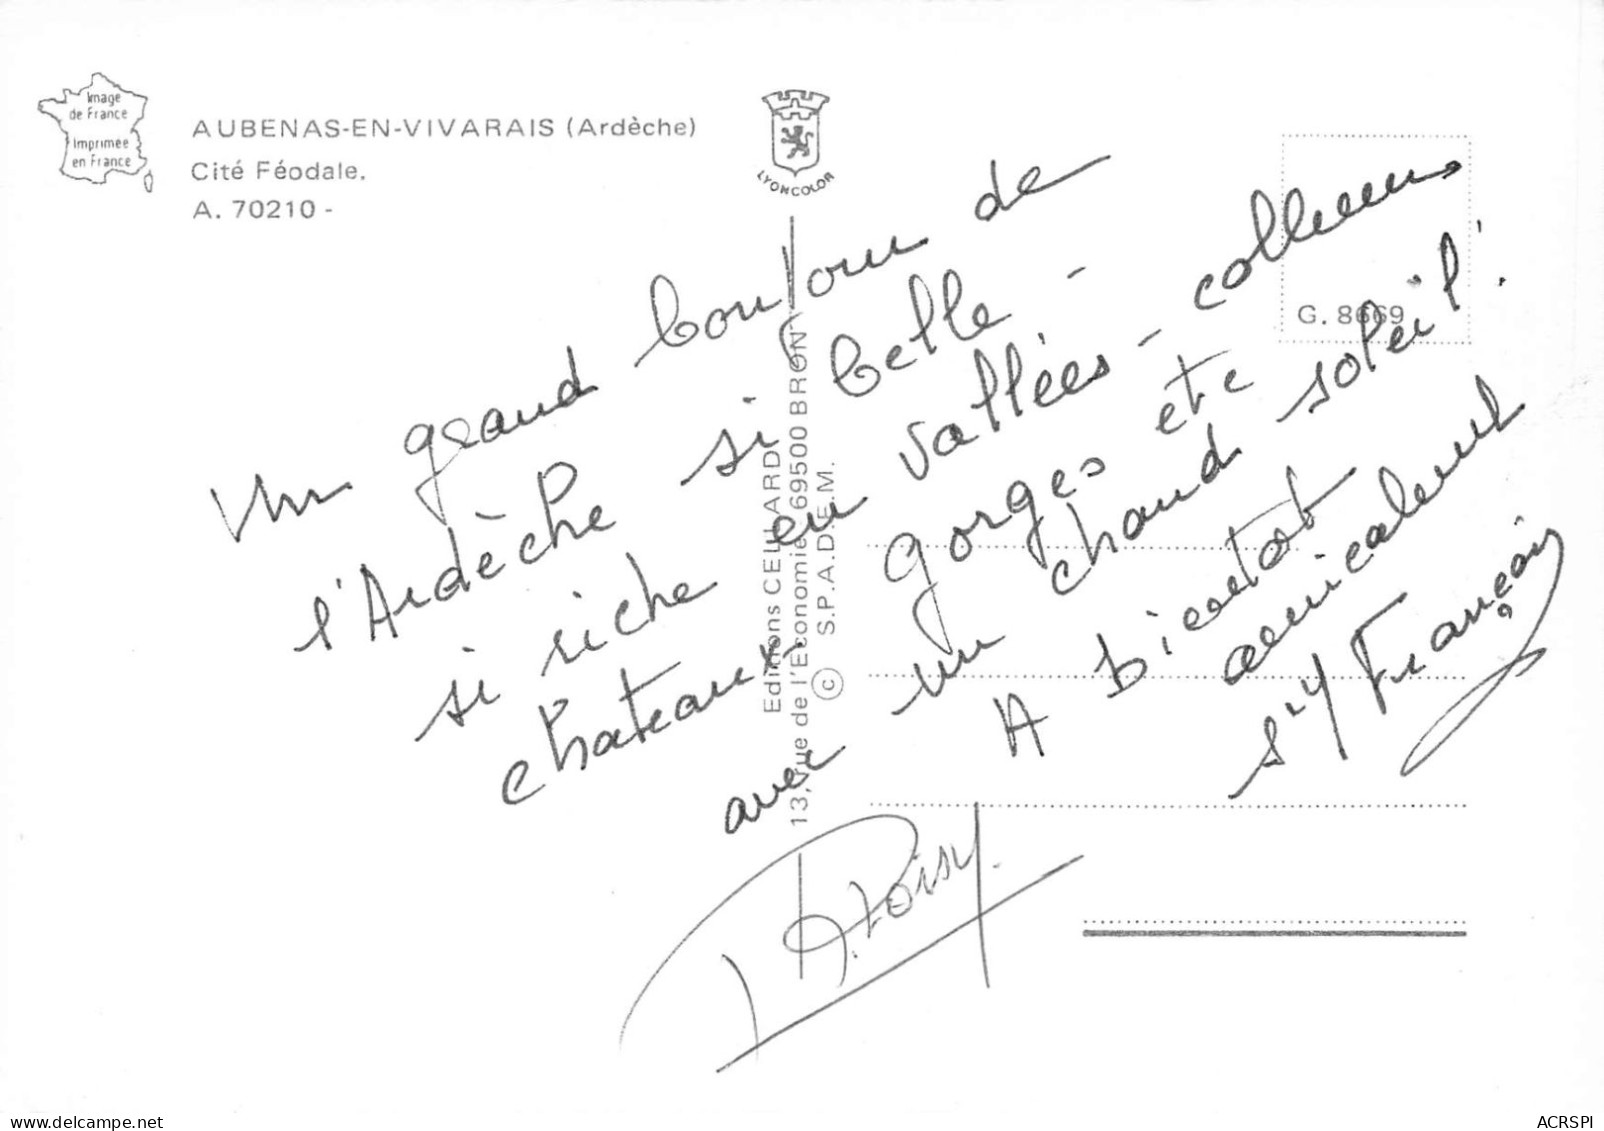 Image
de France
Imprimée
en France
AUBENAS-EN-VIVARAIS (Ardèche)
Cité Féodale.
A. 70210 -
LYONCOLOR
G. 8669
Editions CELLARD
13, rue de l'Economie 69500 BRON
© S.P.A.D.E.M.
Un grand bonjour de
l'Ardèche si belle -
si riche en vallées - collines
chateaux - gorges etc
avec un chaud soleil !
A bientot
amicalement
François
ACRSPI